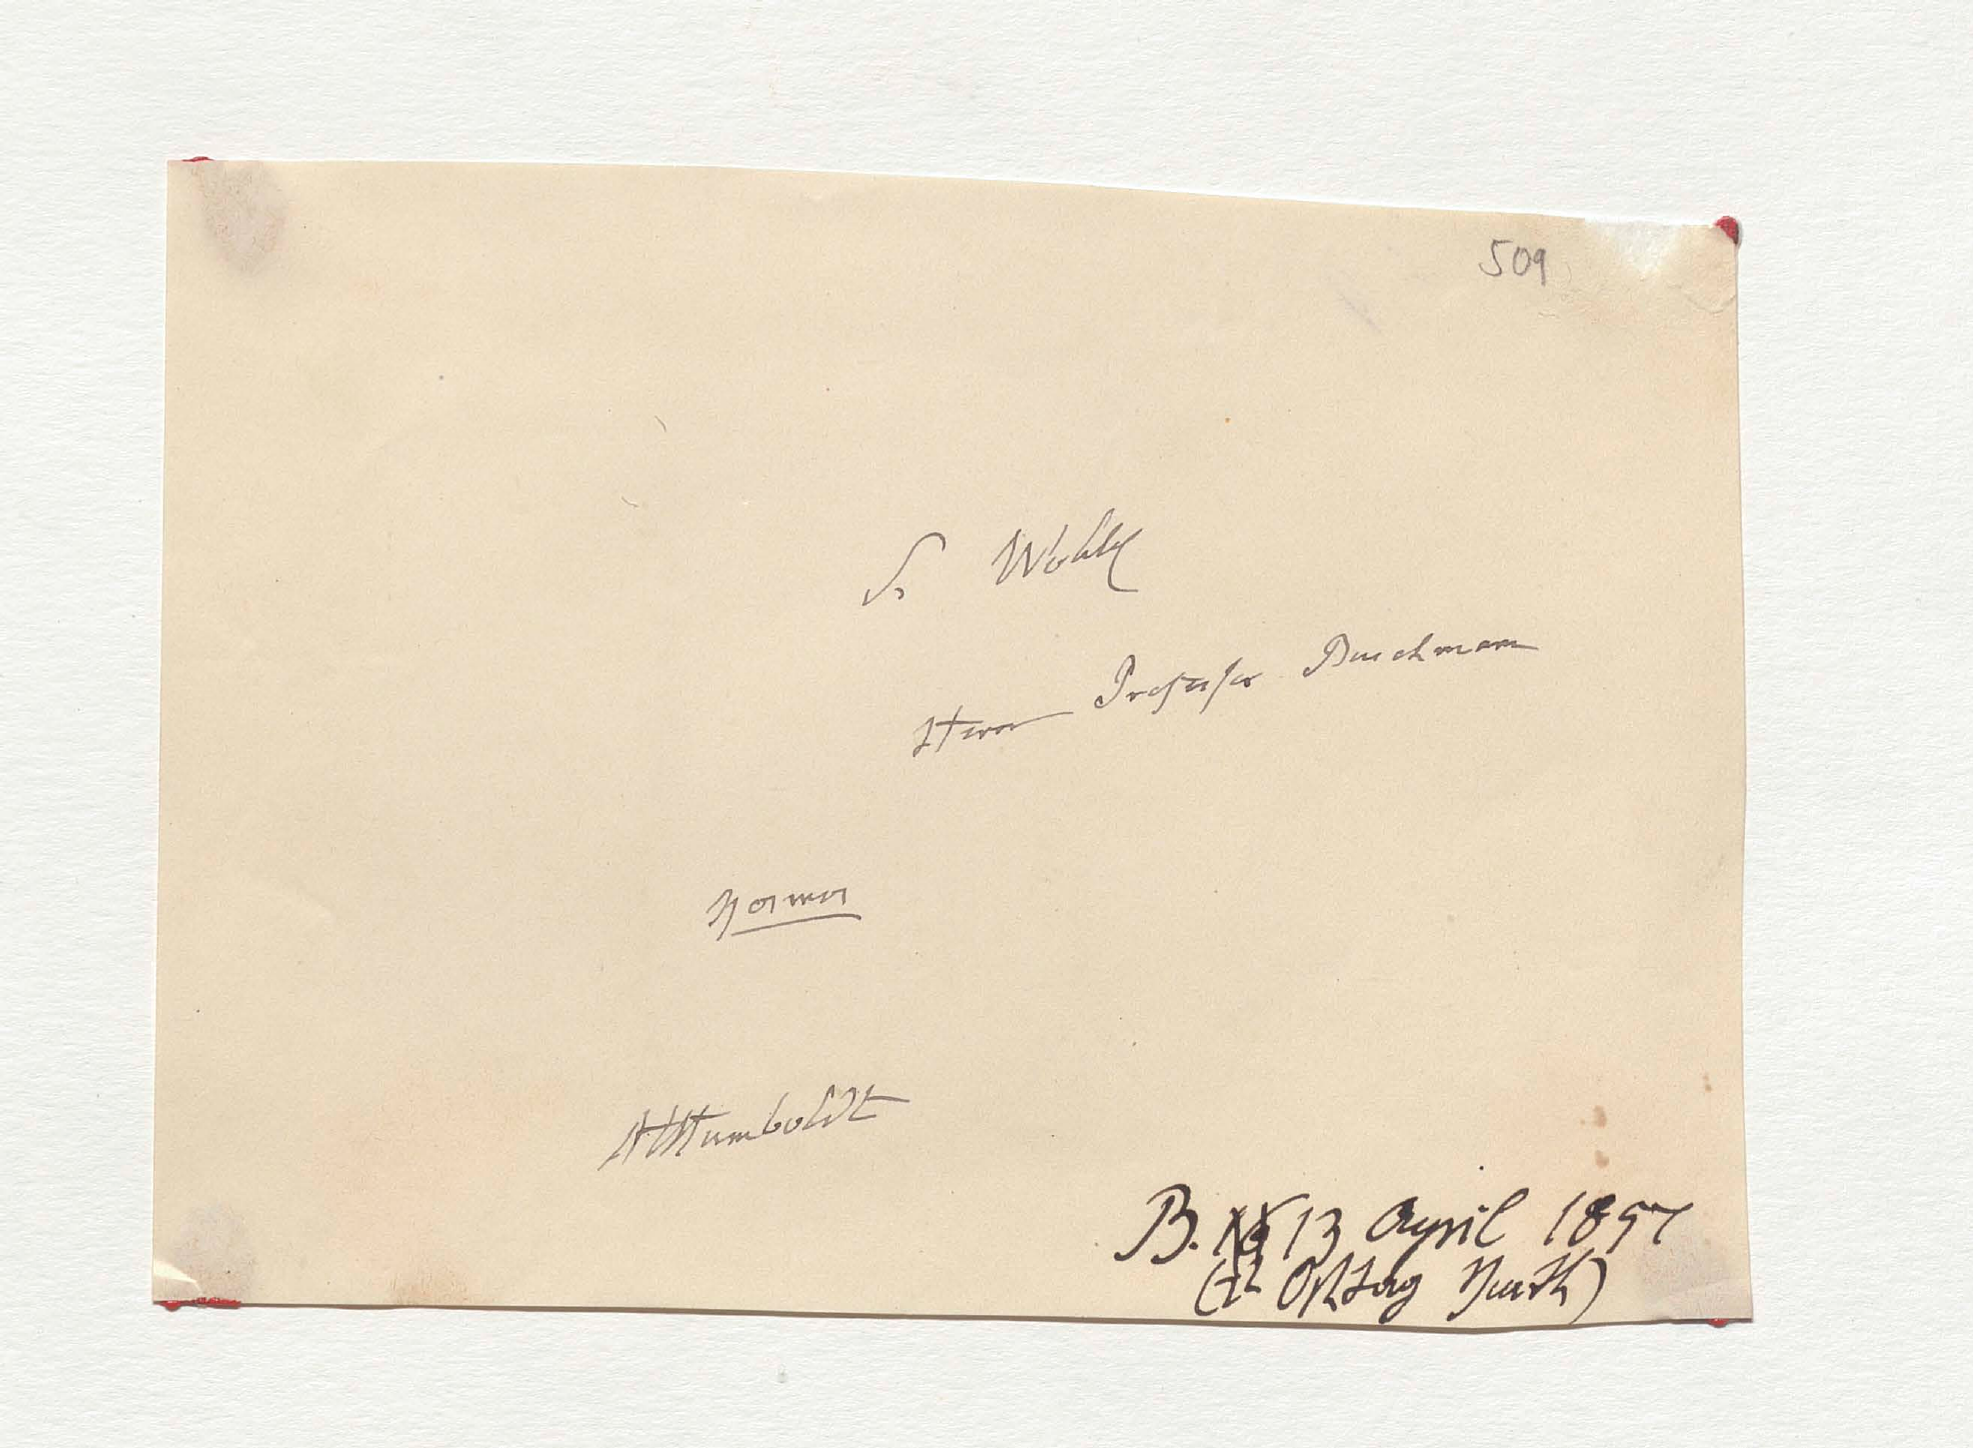 509
Sr Wohlg
Herrn Professor Buschmann
Normer
AvHumboldt
B. 13 April 1857
(2t Ostertag Nachts)